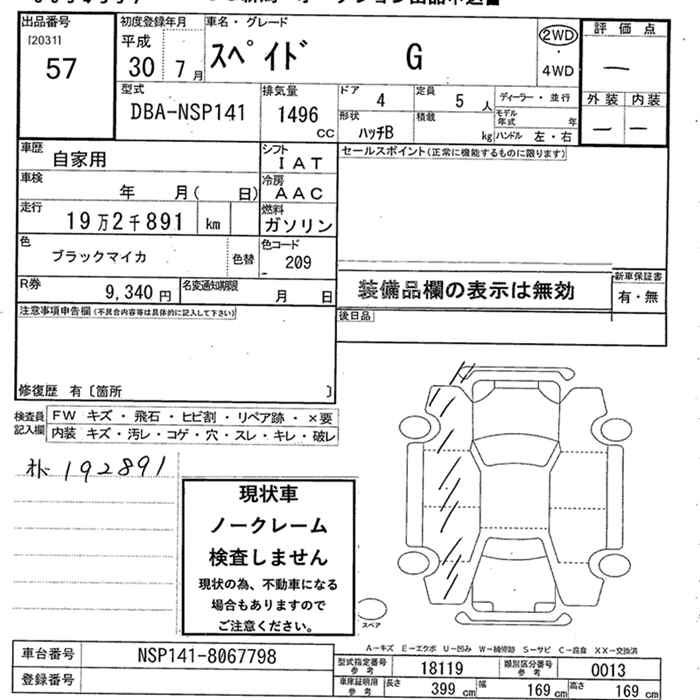 出品番号
[2031]
57
初度登録年月
平成
30 7月
車名・グレード
スペイド G
2WD
・
4WD
評価点
―
外装 内装
― ―
型式
DBA-NSP141
排気量
1496
cc
ドア
4
定員
5 人
ディーラー・並行
形状
ハッチB
積載
kg
モデル年式
年
ハンドル 左・右
車歴
自家用
シフト
IAT
セールスポイント(正常に機能するものに限ります)
車検
年 月( 日)
冷房
AAC
走行
19万2千891 km
燃料
ガソリン
色
ブラックマイカ
色替
色コード
209
R券
9,340円
名変通知期限
月 日
装備品欄の表示は無効
新車保証書
有・無
注意事項申告欄(不具合内容等は具体的に記入して下さい)
後日品
修復歴 有〔箇所 〕
検査員記入欄
FW キズ・飛石・ヒビ割・リペア跡・×要
内装 キズ・汚レ・コゲ・穴・スレ・キレ・破レ
192891
現状車
ノークレーム
検査しません
現状の為、不動車になる
場合もありますので
ご注意ください。
スペア
A―キズ E―エクボ U―凹み W―補修跡 S―サビ C―腐食 XX―交換済
車台番号
NSP141-8067798
登録番号
型式指定番号
参考
18119
類別区分番号
参考
0013
車庫証明用
参考
長さ
399 cm
幅
169 cm
高さ
169 cm